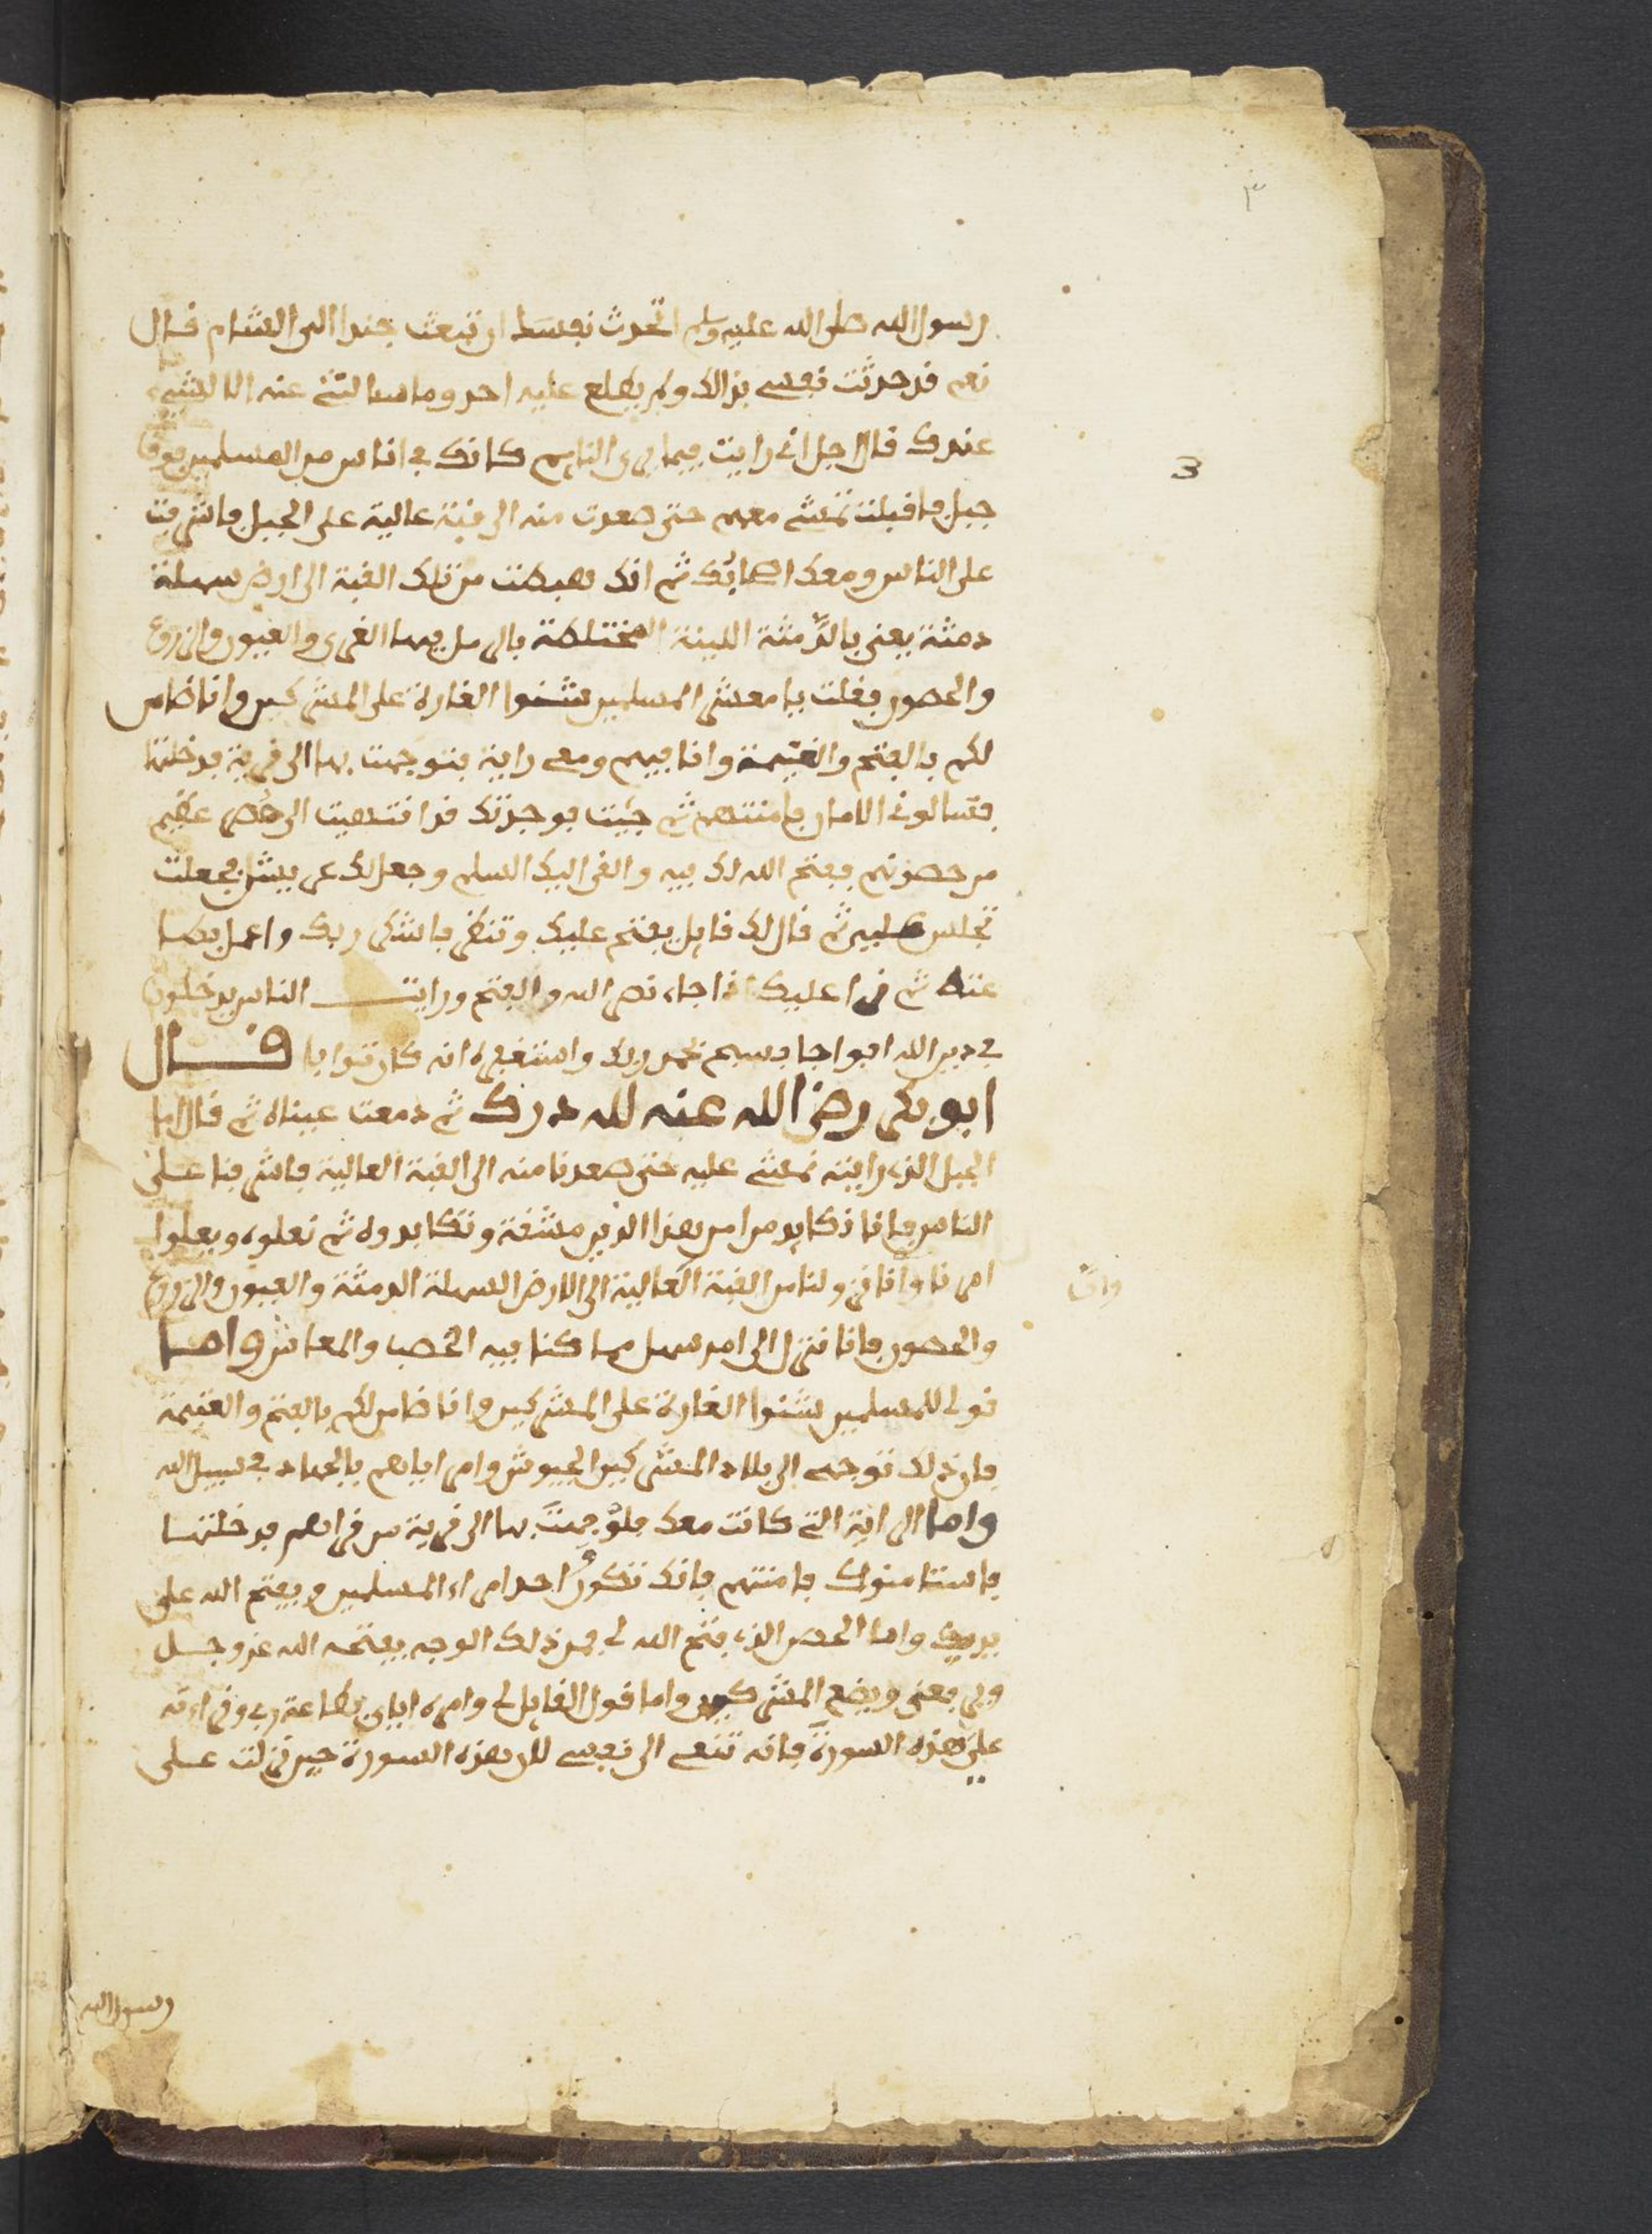 ٣
رسول الله صلى الله عليه وسلم اتحدث نفسك ان تبعث جندا الى الشام قال
نعم قد حدثت نفسي بذالك ولم يطلع عليه احد وما سالتني عنه الا لشيء
عندك قال اجل اني رايت فيما يرى النايم كانك في اناس من المسلمين فوق
3
جبل فاقبلت تمشي معهم حتى صعدت منه الى قبة عالية على الجبل فاشرفت
على الناس ومعك اصحابك ثم انك هبطت من تلك القبة الى ارض سهلة
دمثة يعني بالدمثة اللينة المختلطة بالرمل فيها القرى والعيون والزروع
والحصون فقلت يا معشر المسلمين شنوا الغارة على المشركين وانا ضامن
لكم بالفتح والغنيمة وانا فيهم ومعي راية فتوجهت بها الى قرية فدخلتها
فسالوني الامان فامنتهم ثم جيت فوجدتك قد انتهيت الى حصن عظيم
من حصونهم ففتح الله لك فيه والقى اليك السلم وجعل لك عريش فجعلت
تجلس عليه ثم قال لك قايل يفتح عليك وتنصر فاشكر ربك واعمل بطا
عته ثم قرا عليك اذا جاء نصر الله والفتح ورايت الناس يدخلون
في دين الله افواجا فسبح بحمد ربك واستغفره انه كان توابا قال
ابو بكر رضي الله عنه لله درك ثم دمعت عيناه ثم قال اما
الجبل الذي رايتنا نمشي عليه حتى صعدنا منه الى القبة العالية فاشرفنا على
الناس فانا نكابد من امر هذا الدين مشقة ونكابدوه ثم نعلوه ويعلوا
امرنا وانا نزولنا من القبة العالية الى الارض السهلة الدمثة والعيون والزروع
واما
والحصون فانا ننزل الى امر سهل مما كنا فيه الخصب والمعاش واما
قولي للمسلمين شنوا الغارة على المشركين وانا ضامن لكم بالفتح والغنيمة
فان ذلك توجهي الى بلاد المشركين الجيوش وامر اياهم بالجهاد في سبيل الله
واما الراية التي كانت معك فتوجهت بها الى قرية من قراهم فدخلتها
فاستامنوك فامنتهم فانك تكون احد امراء المسلمين ويفتح الله على
يديك واما الحصن الذي فتح الله لي فهو ذلك الوجه يفتحه الله عز وجل
ويرفعني ويضع المشركين واما قول القايل لي وامره اياي بطاعة ربي وقراءته
على هذه السورة فانه نعى الى نفسي لان هذه السورة حين نزلت على
رسول الله